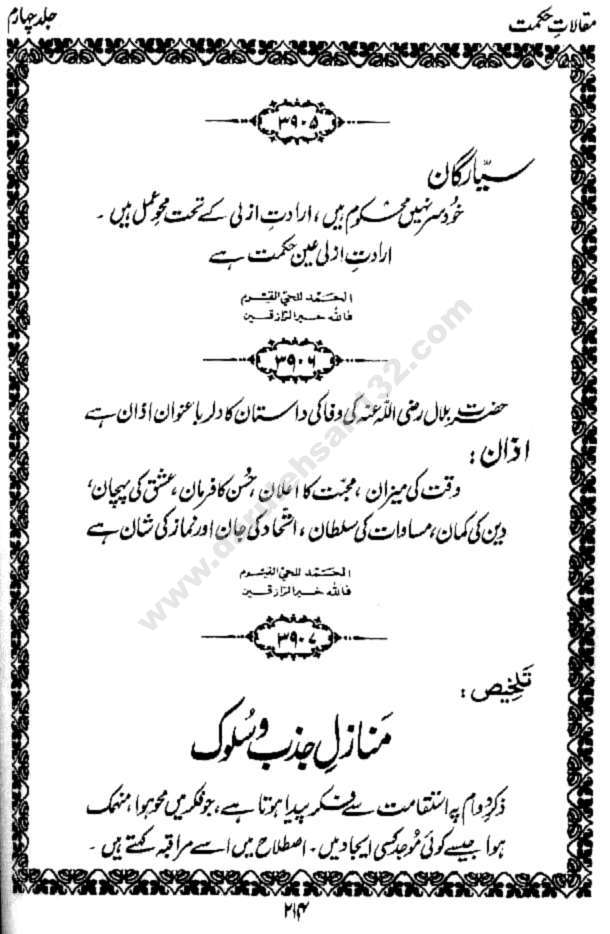 مقالاتِ حکمت
جلد چہارم
۳۹۰۵
سیّارگان
خُود سر نہیں محکوم ہیں، ارادتِ ازلی کے تحت محوِ عمل ہیں۔
ارادتِ ازلی عین حکمت ہے
الحمد للحی القیوم
فاللہ خیر الرازقین
۳۹۰۶
حضرت بلال رضی اللہ عنہ کی وفا کی داستان کا دلربا عنوان اذان ہے
اذان:
وقت کی میزان، محبّت کا اعلان، حُسن کا فرمان، عشق کی پہچان،
دین کی کمان، مساوات کی سلطان، اتّحاد کی جان اور نماز کی شان ہے
الحمد للحی القیوم
فاللہ خیر الرازقین
۳۹۰۷
تلخیص:
مَنازلِ جذب و سُلوک
ذکرِ دوام پہ استقامت سے فکر پیدا ہوتا ہے، جو فکر میں محو ہوا، منہمک
ہوا جیسے کوئی مُوجد کسی ایجاد میں۔ اصطلاح میں اسے مراقبہ کہتے ہیں۔
۲۱۴
www.darulehsan132.com